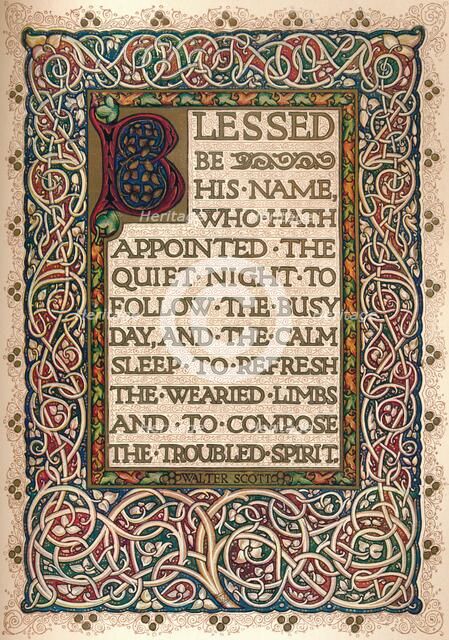 BLESSED
BE
HIS·NAME,
WHO·HATH
APPOINTED·THE
QUIET·NIGHT·TO
FOLLOW·THE·BUSY
DAY, AND·THE·CALM
SLEEP·TO·REFRESH
THE·WEARIED·LIMBS
AND·TO·COMPOSE
THE·TROUBLED·SPIRIT.
WALTER SCOTT